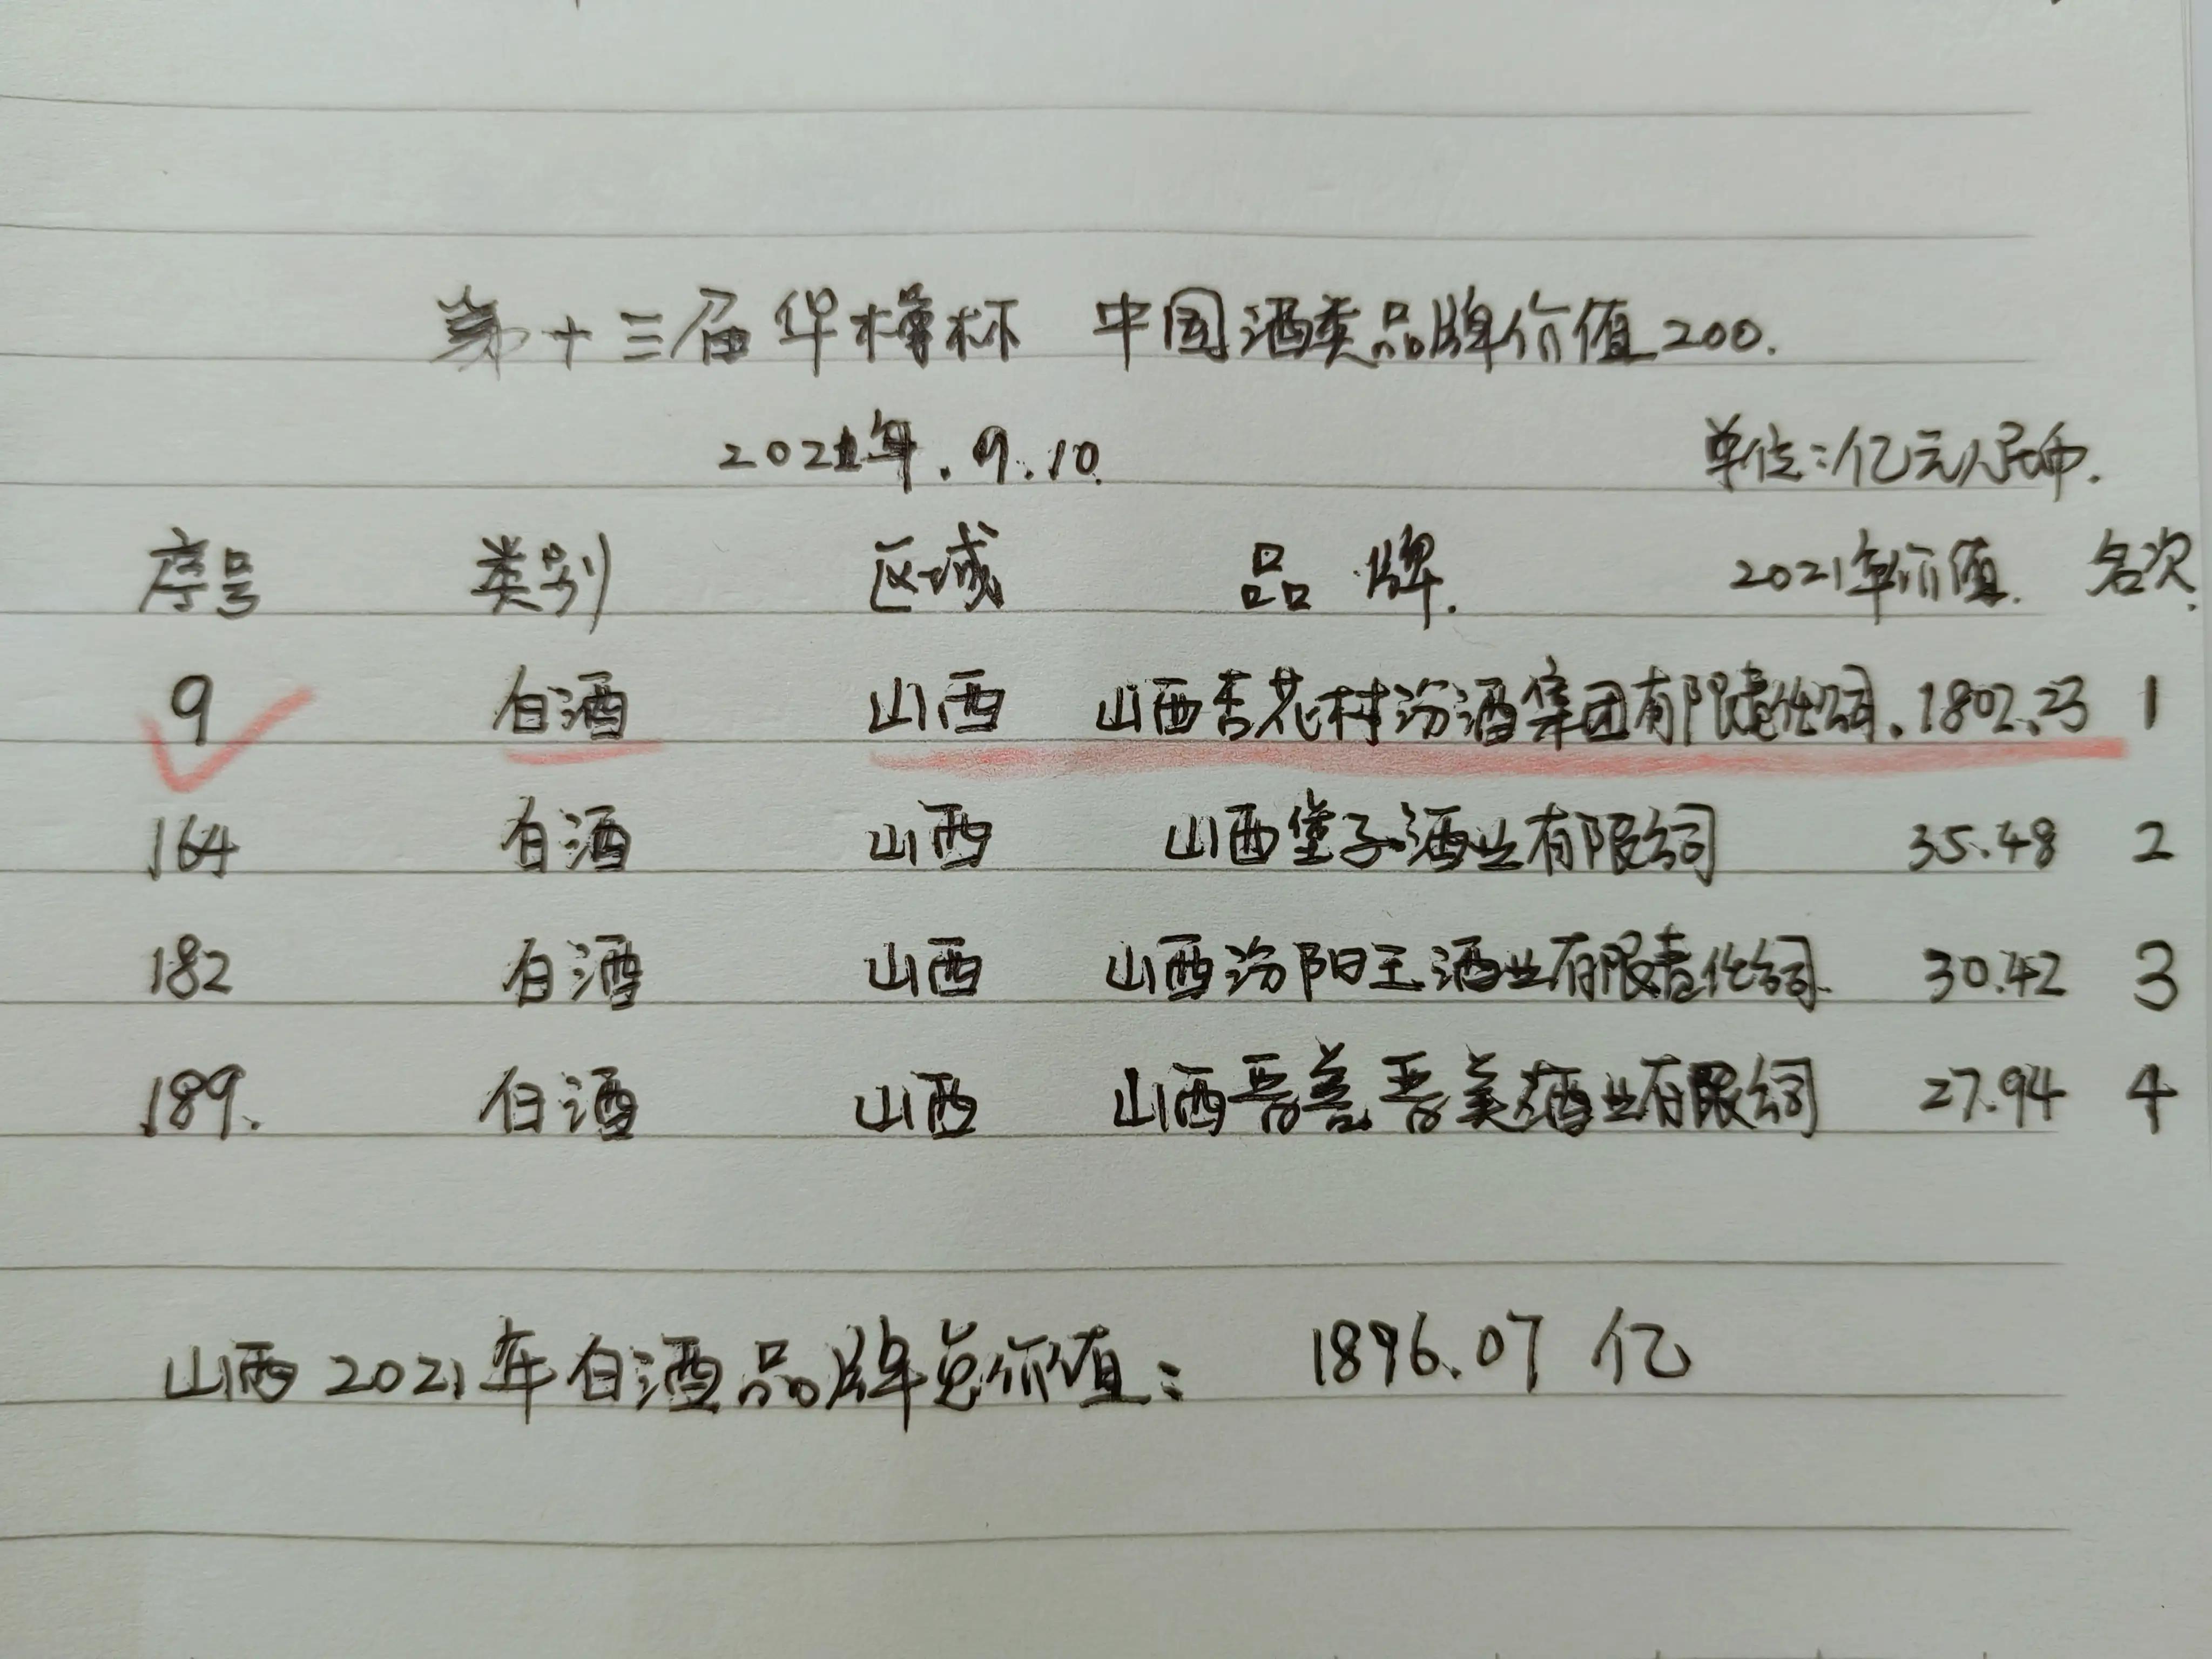 第十三届华樽杯 中国酒类品牌价值200.
2021年.9.10. 单位:亿元人民币.
序号 类别 区域 品牌. 2021年价值. 名次.
9 白酒 山西 山西杏花村汾酒集团有限责任公司. 1802.23 1
164 白酒 山西 山西堡子酒业有限公司 35.48 2
182 白酒 山西 山西汾阳王酒业有限责任公司. 30.42 3
189. 白酒 山西 山西晋善晋美酒业有限公司 27.94 4
山西2021年白酒品牌总价值: 1896.07亿